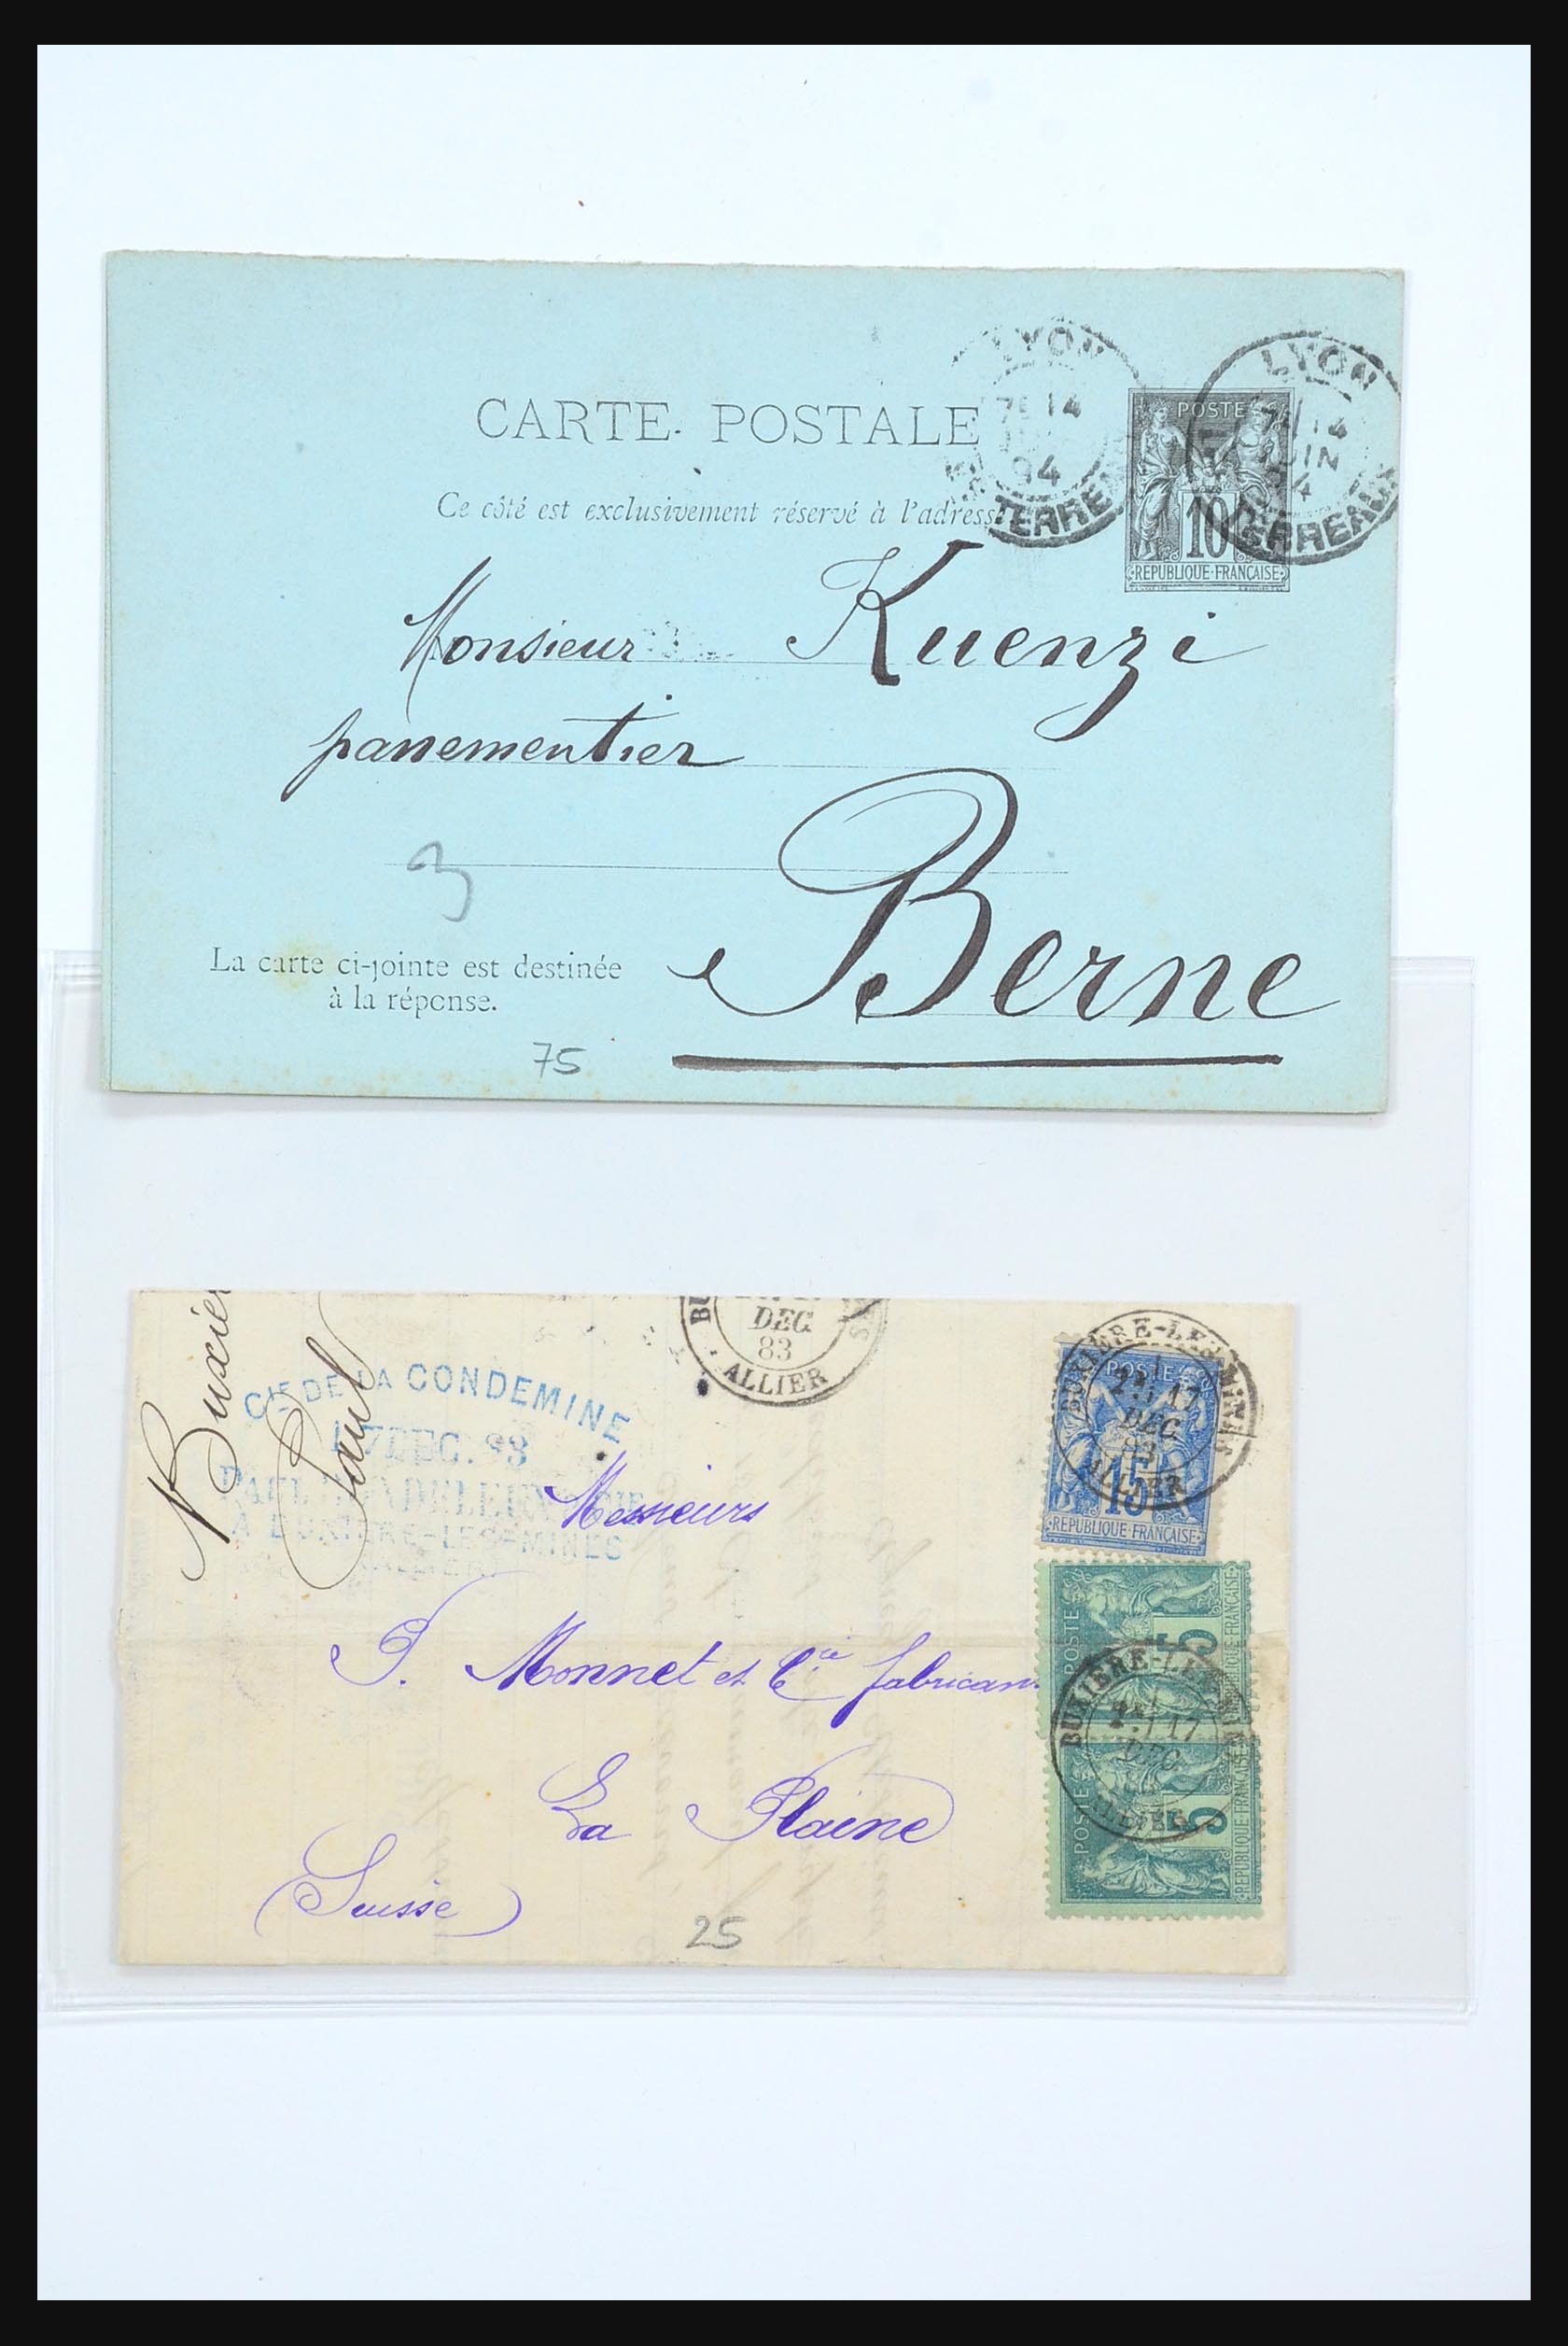 LYON
14
94
TERREAUX
LYON
14
JUIN
94
TERREAUX
POSTES
10
REPUBLIQUE FRANÇAISE
CARTE POSTALE
Ce côté est exclusivement réservé à l'adresse
Monsieur Kuenzi
passementier
Berne
3
La carte ci-jointe est destinée
à la réponse.
75
Buxièr
Paul
DEC
83
ALLIER
Cie DE LA CONDEMINE
17 DEC. 83
A BUXIERE-LES-MINES
BUXIERE-LES-MINES
17
DEC
83
ALLIER
POSTES
15
REPUBLIQUE FRANÇAISE
Messieurs
P. Monnet et Cie fabrican
La Plaine
(Suisse)
25
POSTES
5
REPUBLIQUE FRANÇAISE
BUXIERE-LES-MINES
17
DEC
ALLIER
POSTES
5
REPUBLIQUE FRANÇAISE